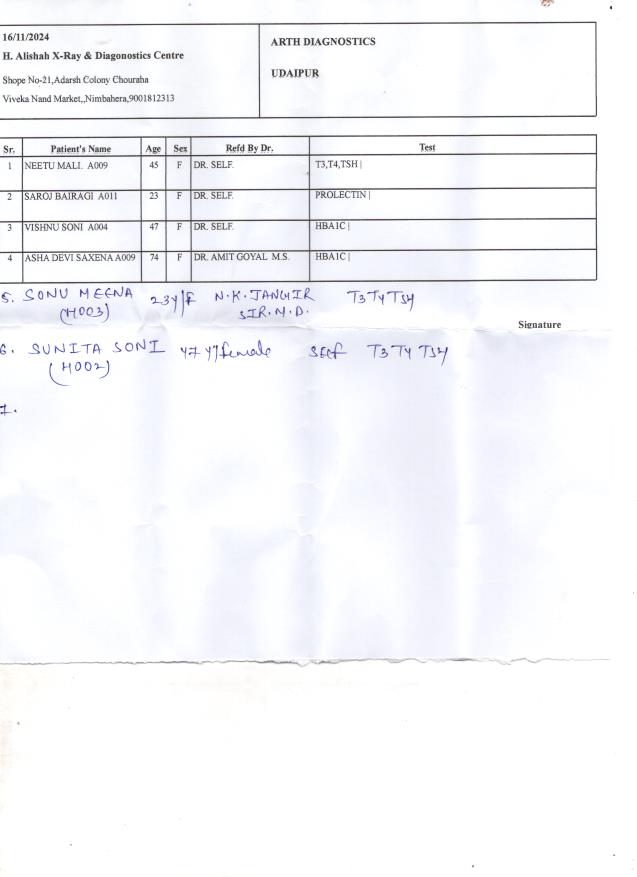 16/11/2024
H. Alishah X-Ray & Diagonostics Centre
Shope No-21,Adarsh Colony Chouraha
Viveka Nand Market,,Nimbahera,9001812313
ARTH DIAGNOSTICS
UDAIPUR
Sr. Patient's Name Age Sex Refd By Dr. Test
1 NEETU MALI. A009 45 F DR. SELF. T3,T4,TSH |
2 SAROJ BAIRAGI A011 23 F DR. SELF. PROLECTIN |
3 VISHNU SONI A004 47 F DR. SELF. HBA1C |
4 ASHA DEVI SAXENA A009 74 F DR. AMIT GOYAL M.S. HBA1C |
5. SONU MEENA 23Y/F N.K.JANGIR T3 T4 TSH
(H003) SIR.M.D.
Signature
6. SUNITA SONI 47 Y/female self T3 T4 TSH
(H002)
7.